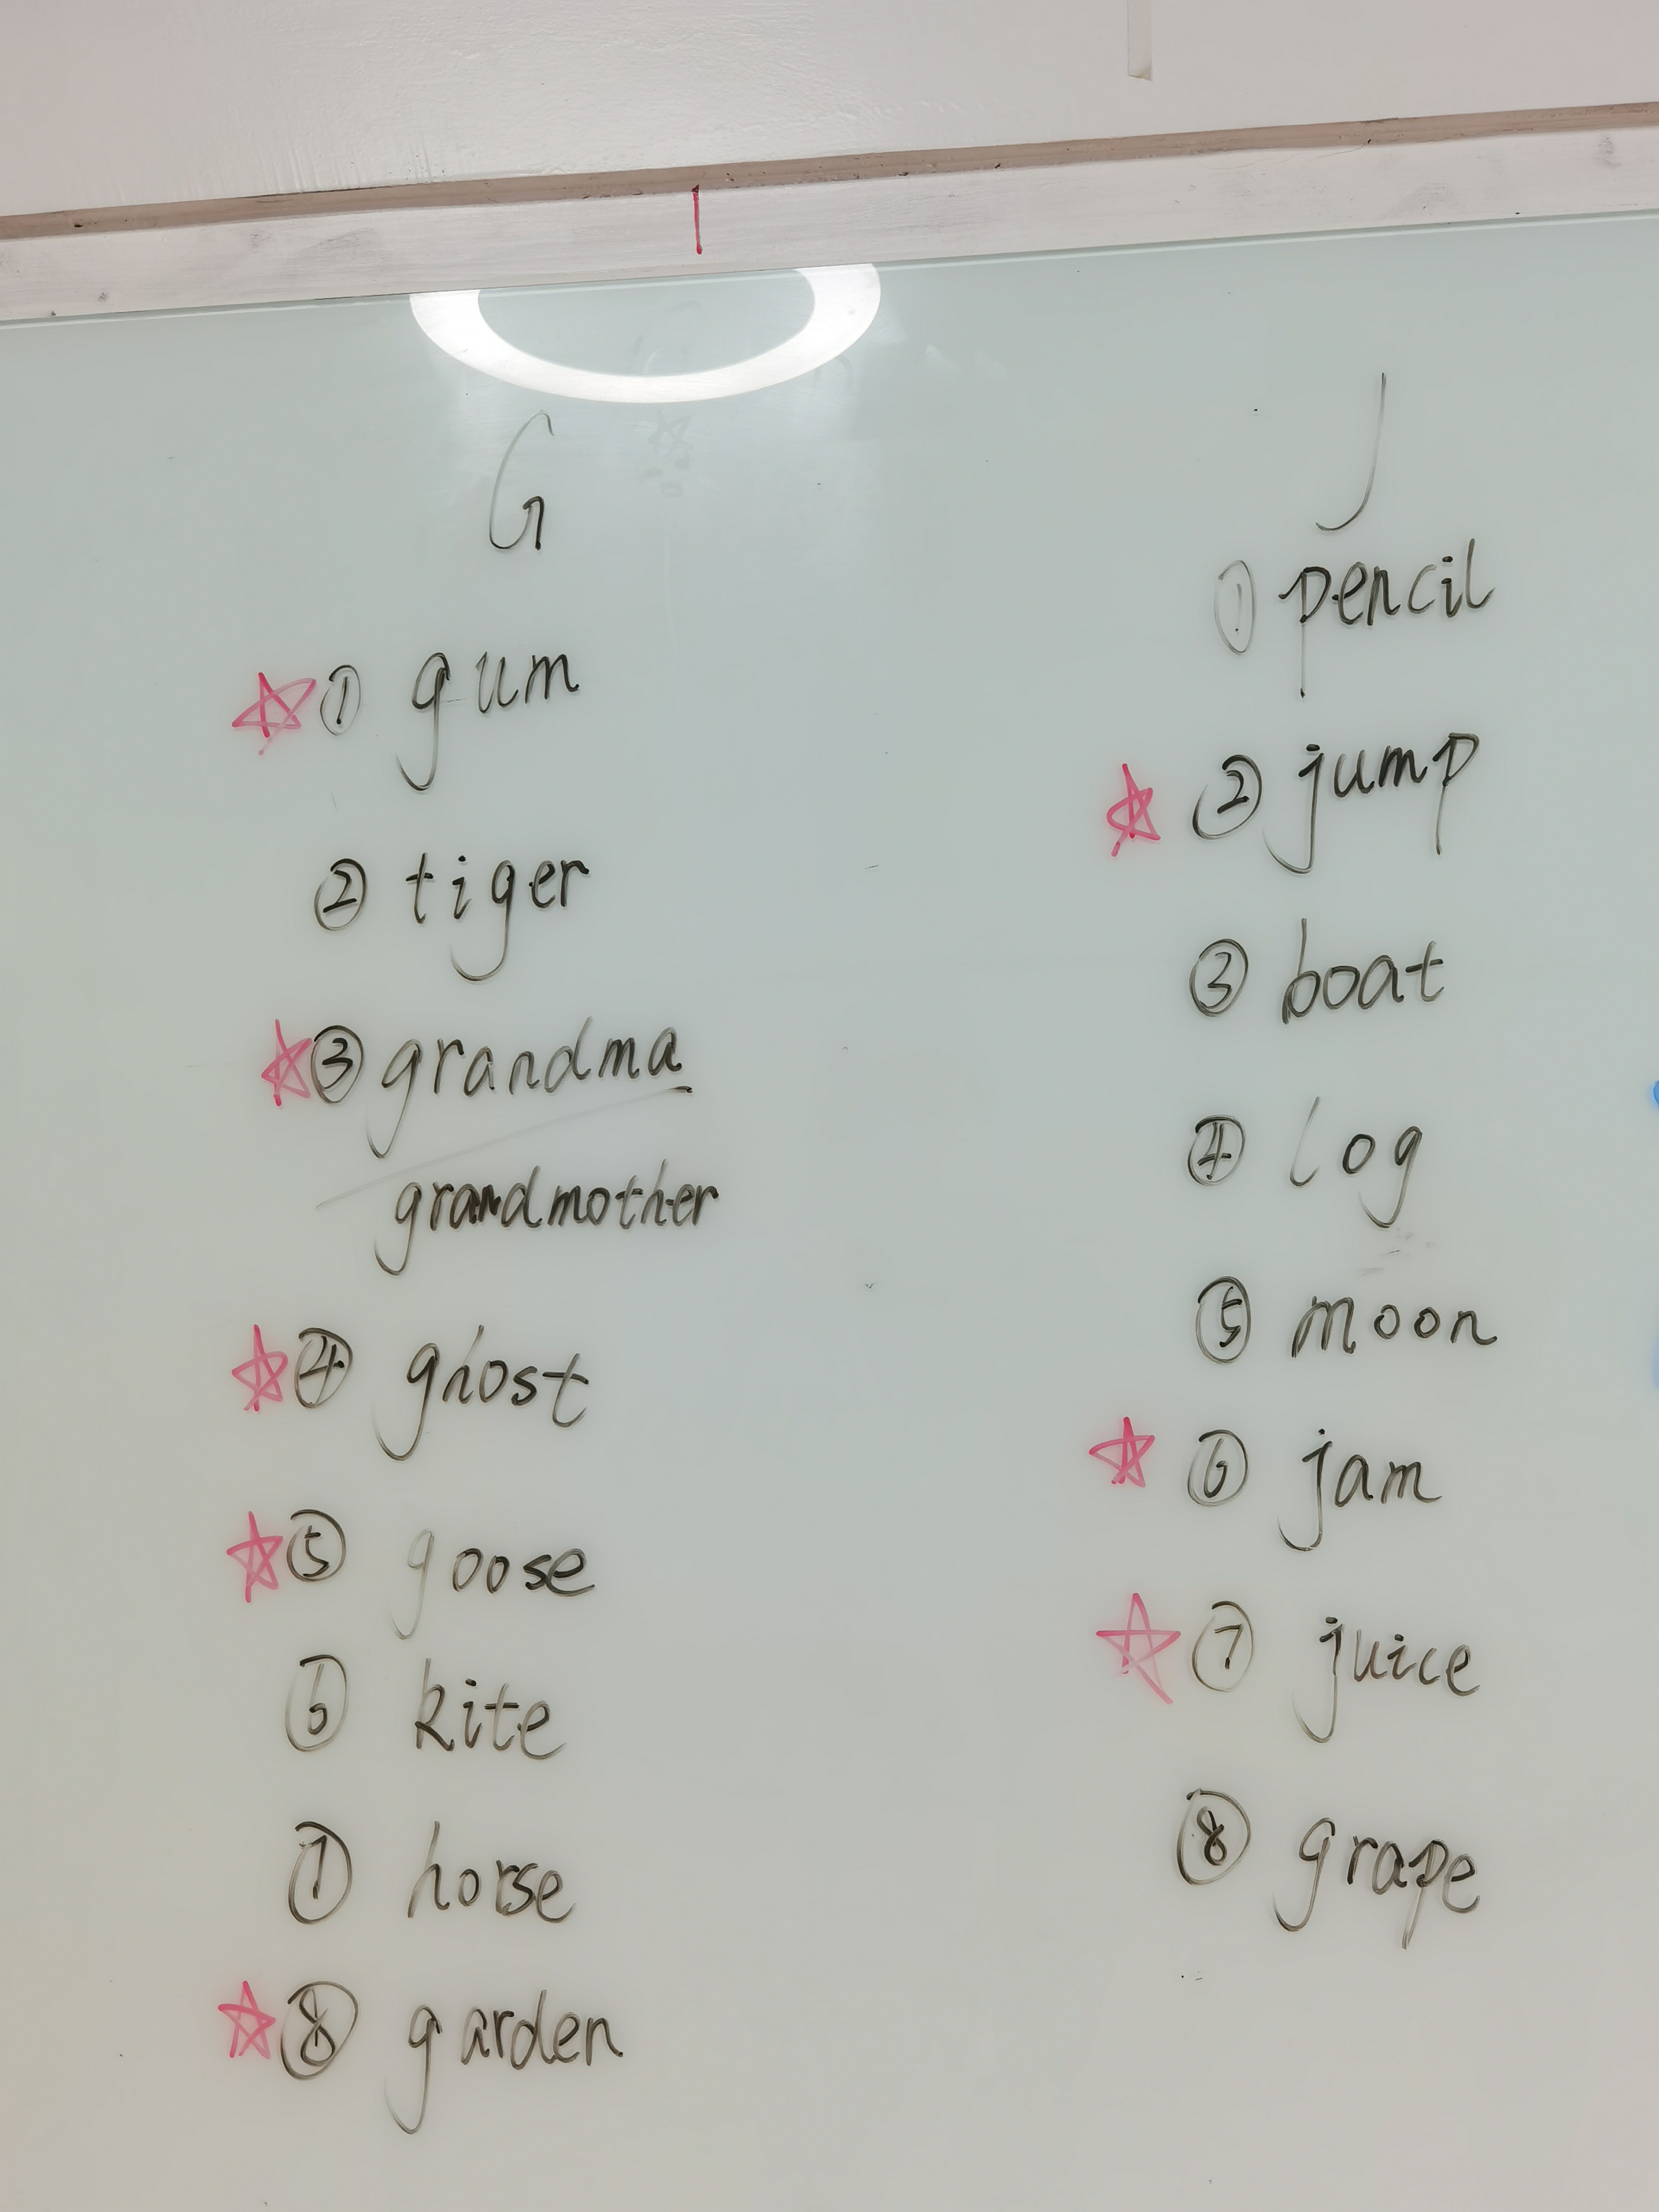 G
☆① gum
② tiger
☆③ grandma
grandmother
☆④ ghost
☆⑤ goose
⑥ kite
⑦ horse
☆⑧ garden
J
① pencil
☆② jump
③ boat
④ log
⑤ moon
☆⑥ jam
☆⑦ juice
⑧ grape